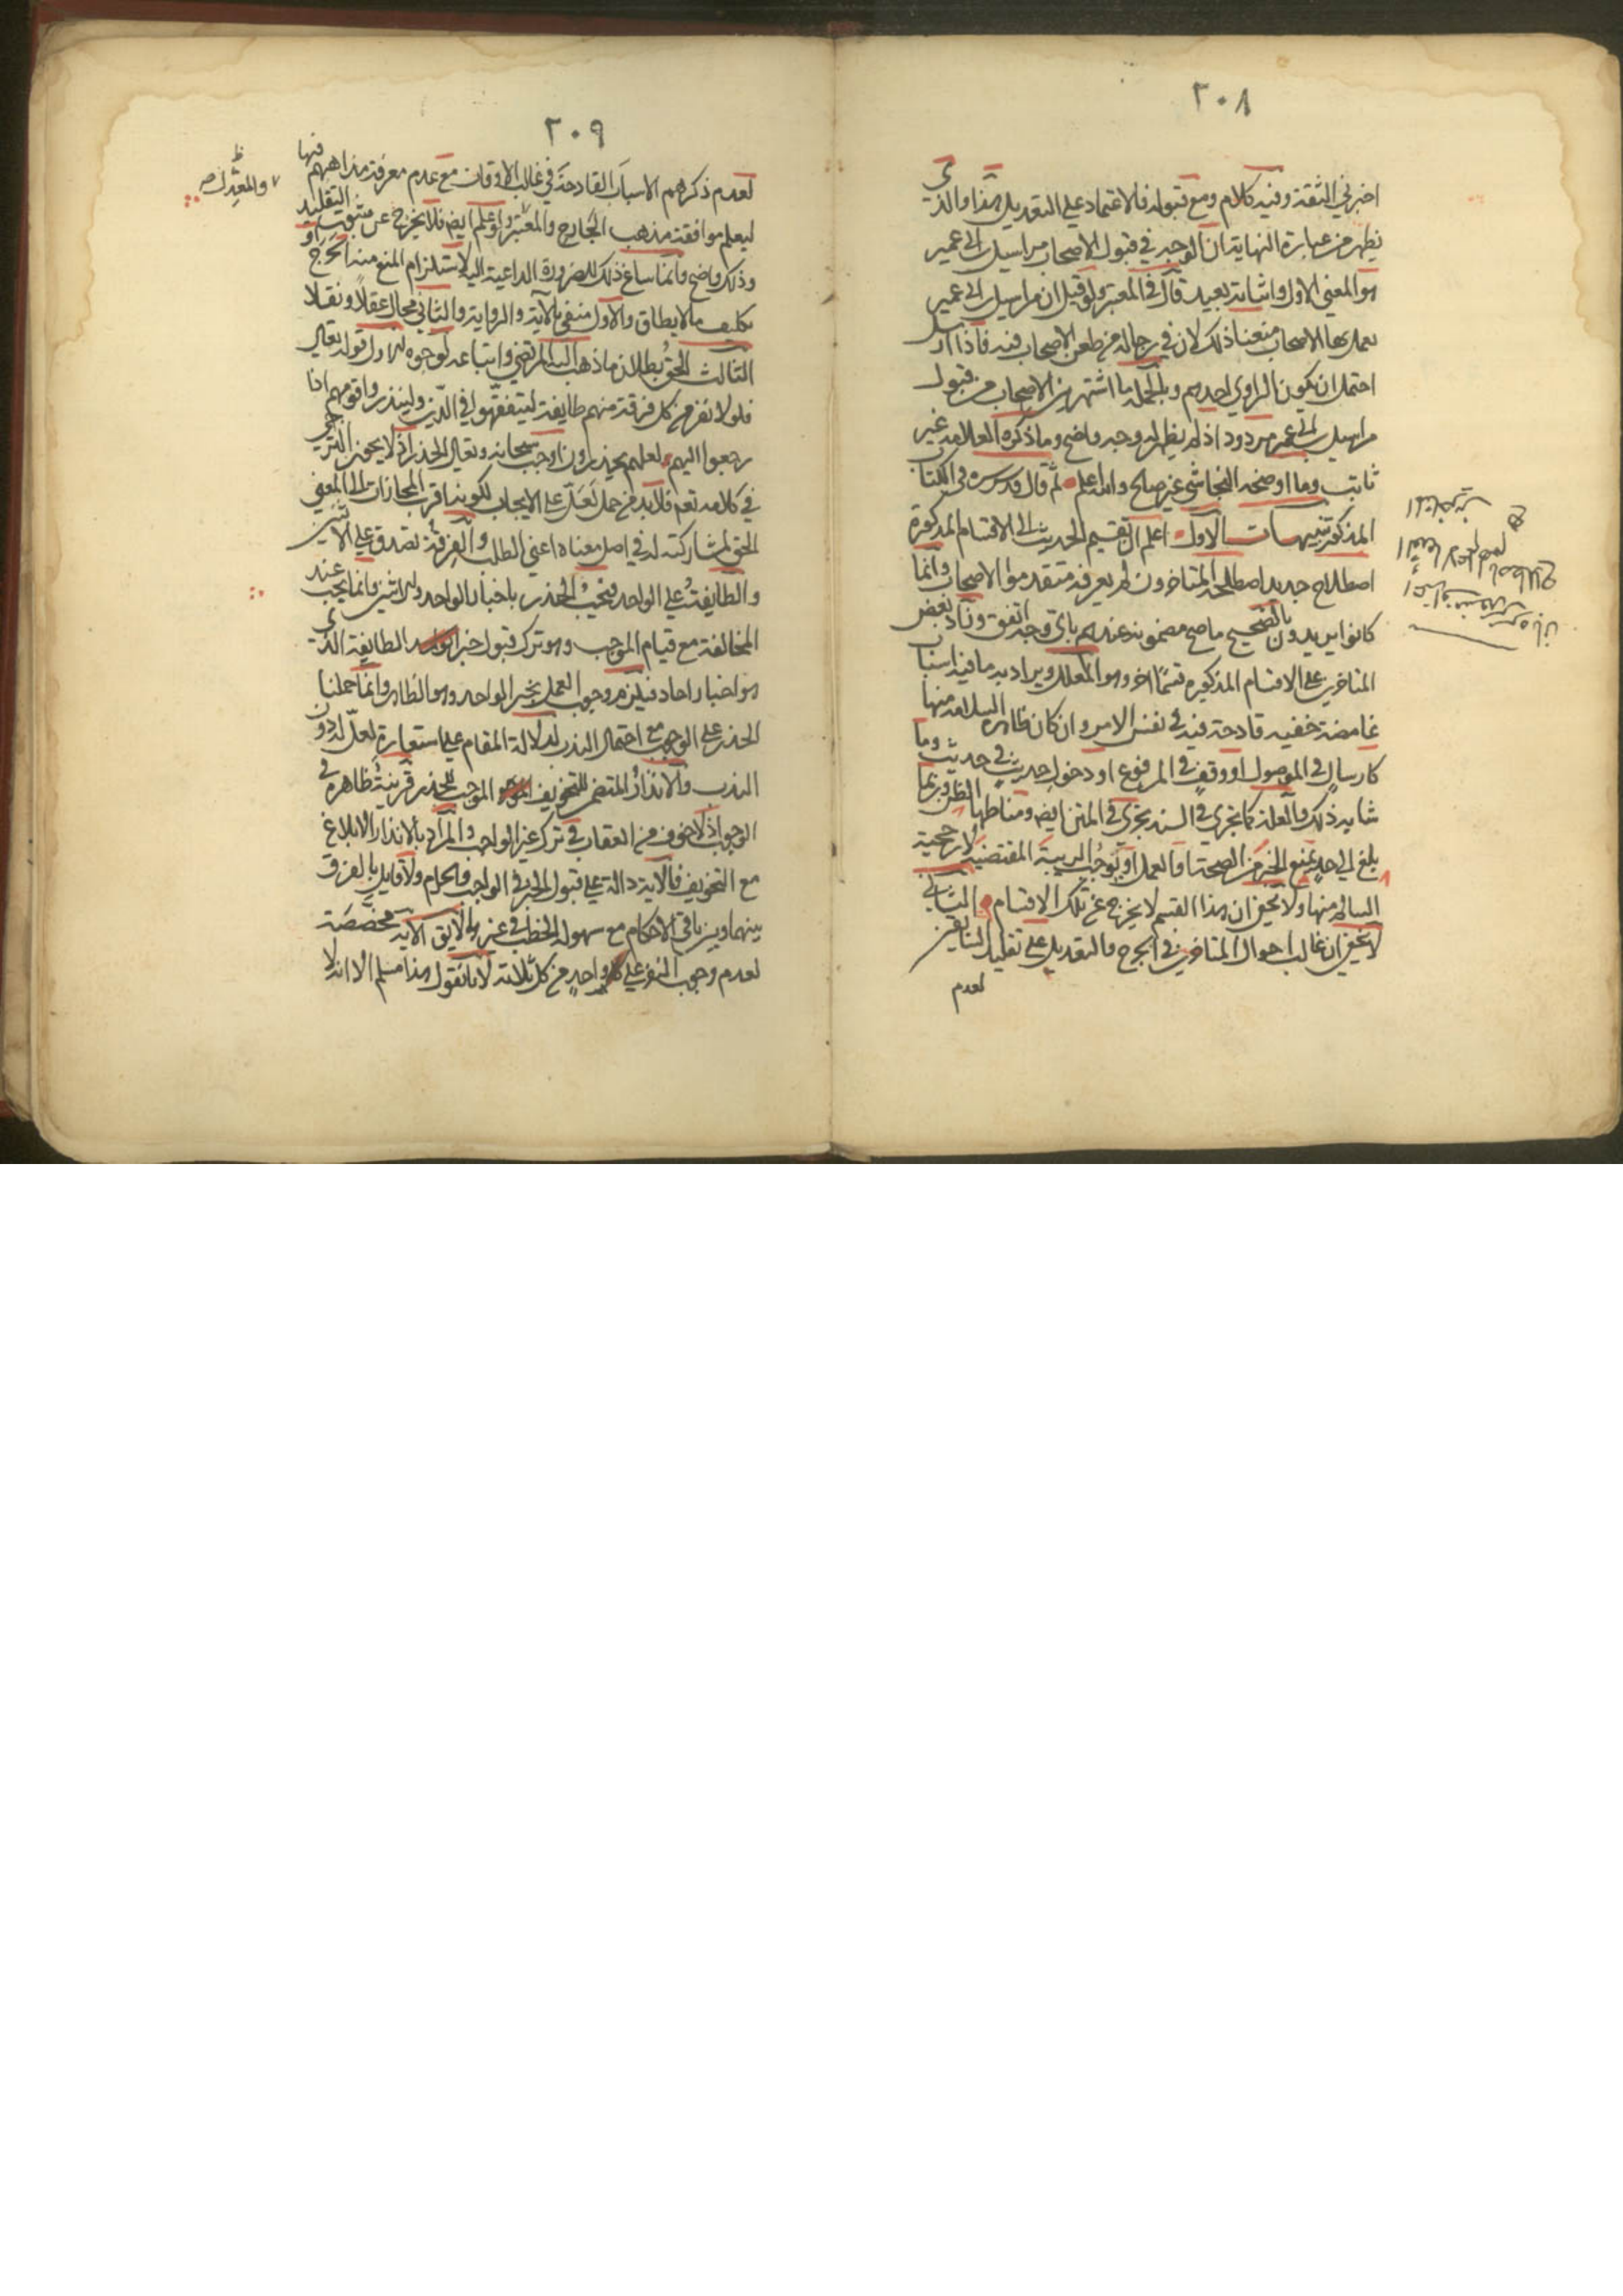 ٢٠٨
اخبرني الثقة وفيه كلام ومع قبوله فلا اعتماد على التعديل هنا والذي
يظهر من عبارة النهاية ان الوجه في قبول الاصحاب مراسيل ابي عمير
هو المعنى الاول واثباته بعيد قال في المعتبر ولو قيل ان مراسيل ابي عمير
يعمل بها الاصحاب منعنا ذلك لان في رجاله من طعن الاصحاب فيه فاذا ارسل
احتمل ان يكون الراوي احدهم وبالجملة ما اشتهر بين الاصحاب من قبول
مراسيل ابي عمير مردود اذ لم يظهر له وجه واضح وما ذكره العلامة غير
ثابت وما اوضحه النجاشي غير صالح والله اعلم ثم قال قدس سره في الكتاب
المذكور تنبيهات الاول اعلم ان تقسيم الحديث الى الاقسام المذكورة
اصطلاح جديد اصطلحه المتاخرون لم يعرفه متقدموا الاصحاب وانما
كانوا يريدون بالصحيح ما صح مضمونه عندهم باي وجه اتفق وزاد بعض
المتاخرين على الاقسام المذكورة قسما اخر وهو المعلل ويراد به ما فيه اسباب
غامضة خفيه قادحة فيه في نفس الامر وان كان ظاهره السلامة منها
كارسال في الموصول او وقف في المرفوع او دخول حديث في حديث وما
شابه ذلك والعلة كما تجري في السند تجري في المتن ايضا ومناطها الظن وربما
بلغ الى حد يمنع الخبر من الصحة او العمل او يوجب الريبة المقتضية لارجحية
السالم منها ولا يخفى ان هذا القسم لا يخرج عن تلك الاقسام الثاني
لا يخفى ان غالب احوال المتاخرين في الجرح والتعديل على تقليد السابقين
لعدم
٢٠٩
لعدم ذكرهم الاسباب القادحة في غالب الاوقات مع عدم معرفة مذاهبهم فيها
ليعلم موافقة مذهب الجارح والمعتبر او علم ايضا فلا يخرج عن التقليد
وذلك واضح وانما ساغ ذلك للضرورة الداعية اليه لاستلزام المنع منه الحرج او
تكليف ما لا يطاق والاول منفي بالاية والرواية والثاني محال عقلا ونقلا
الثالث الحق بطلان ما ذهب اليه المرتضى واتباعه لوجوه الاول قوله تعالى
فلولا نفر من كل فرقة منهم طايفة ليتفقهوا في الدين ولينذروا قومهم اذا
رجعوا اليهم لعلهم يحذرون اوجب سبحانه وتعالى الحذر اذ لا يجوز الترجي
في كلامه تعم فلا بد من حمل لعل على الايجاب لكونه اقرب المجازات الى المعنى
الحق لمشاركته له في اصل معناه اعني الطلب والفرقة تصدق على الاثنين
والطايفة على الواحد فيجب الحذر باخبار الواحد والاثنين وانما يجب عند
المخالفة مع قيام الموجب وهو ترك قبول خبر الطايفة الذي
هو اخبار احاد فيلزم وجوب العمل بخبر الواحد وهو الظاهر وانما حملنا
الحذر على الوجوب مع احتمال الندب لدلالة المقام على استعارة لعل له دون
الندب والانذار المتضمن للتخويف الموجب للحذر قرينة ظاهرة في
الوجوب اذ لا خوف من العقاب في ترك غير الواجب والمراد بالانذار الابلاغ
مع التخويف فالاية دالة على قبول الخبر في الواجب والحرام ولا قايل بالفرق
بينهما وبين باقي الاحكام مع سهولة الخطب في غيرها لا يق الاية مخصصة
لعدم وجوب النفر على كل واحد من كل ثلاثة لانا نقول هذا مسلم الا انه لا
والمعدل ص